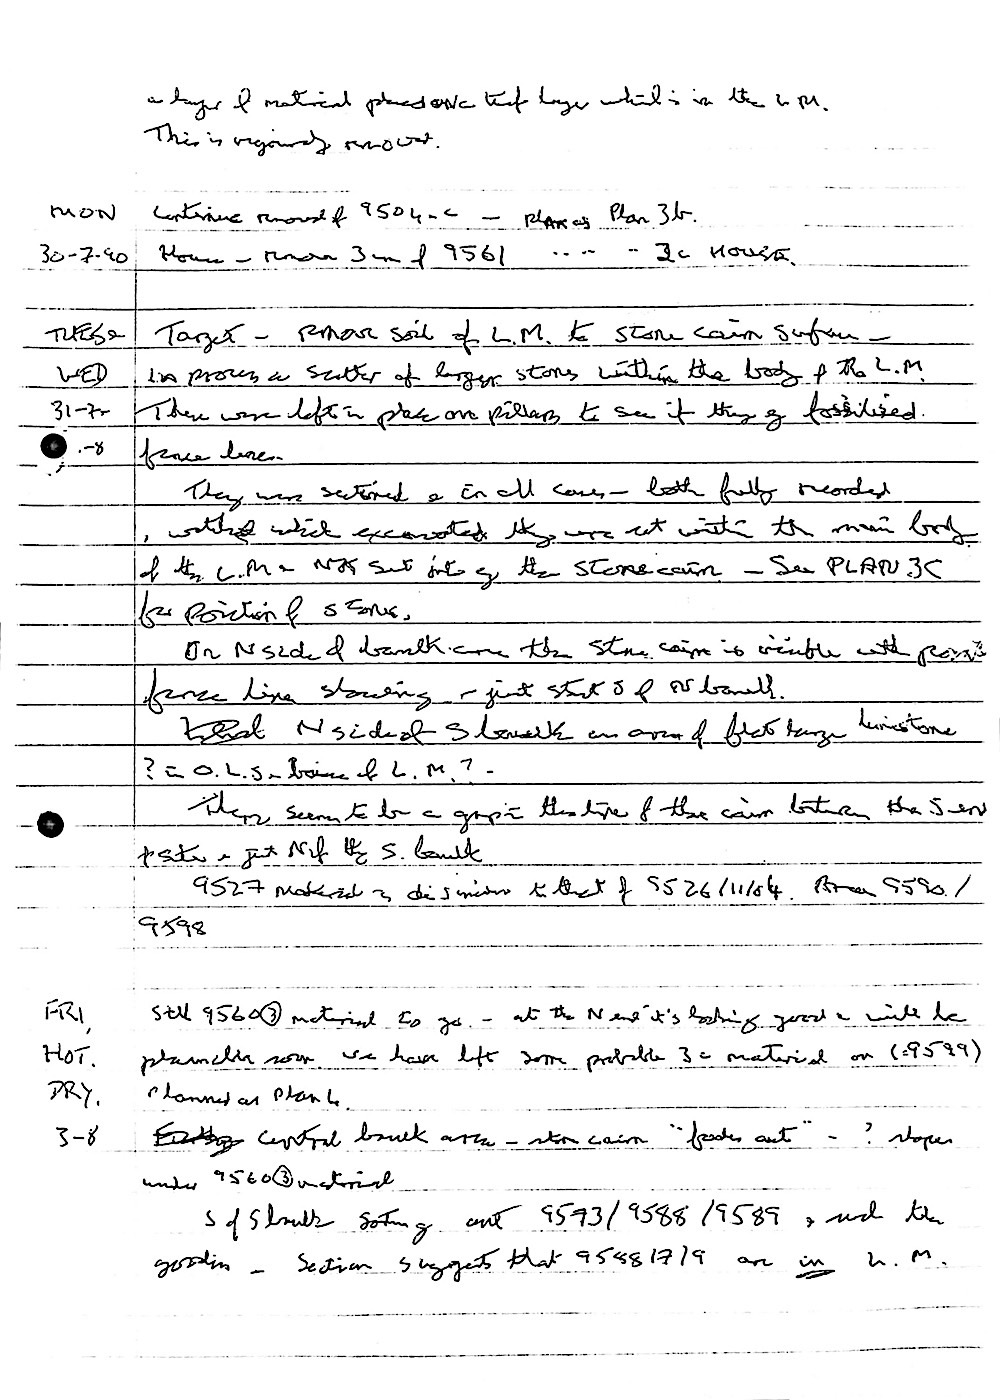 a layer of material placed over that layer which is in the L.M.
This is vigorously removed.
MON Continue removal of 9504-c – PLAN as Plan 3b.
30-7-90 House – remove 3 cm of 9561 .. .. 3c HOUSE.
TUES & Target – remove soil of L.M. to stone cairn surface –
WED In process a scatter of larger stones within the body of the L.M.
31-7- These were left in place on pillars to see if they fossilised
.-8 fence lines.
They were sectioned & in all cases – both fully recorded
, which excavated they were set within the main body
of the L.M & NOT set into the stone cairn – See PLAN 3C
for position of stones.
On N side of baulk the stone cairn is visible with
fence line showing – just start S of N baulk.
N side of S baulk an area of flat large limestone
? = O.L.S. – base of L.M.? –
There seems to be a gap in the line of the cairn between the S end
& just N of the S. baulk
9527 material is to that of 9526/11/04. 9590/
9598
FRI, Still 9560③ material to go – at the N end it's looking good & will be
HOT. plannable soon we have left some probable 3c material on (=9599)
DRY. Planned as Plan 4.
3-8 Central baulk area – stone cairn "fades out" – ? slopes
under 9560③ material
S of S baulk sorting out 9593/9588/9589 , the
– Section suggests that 9588/7/9 are in L.M.